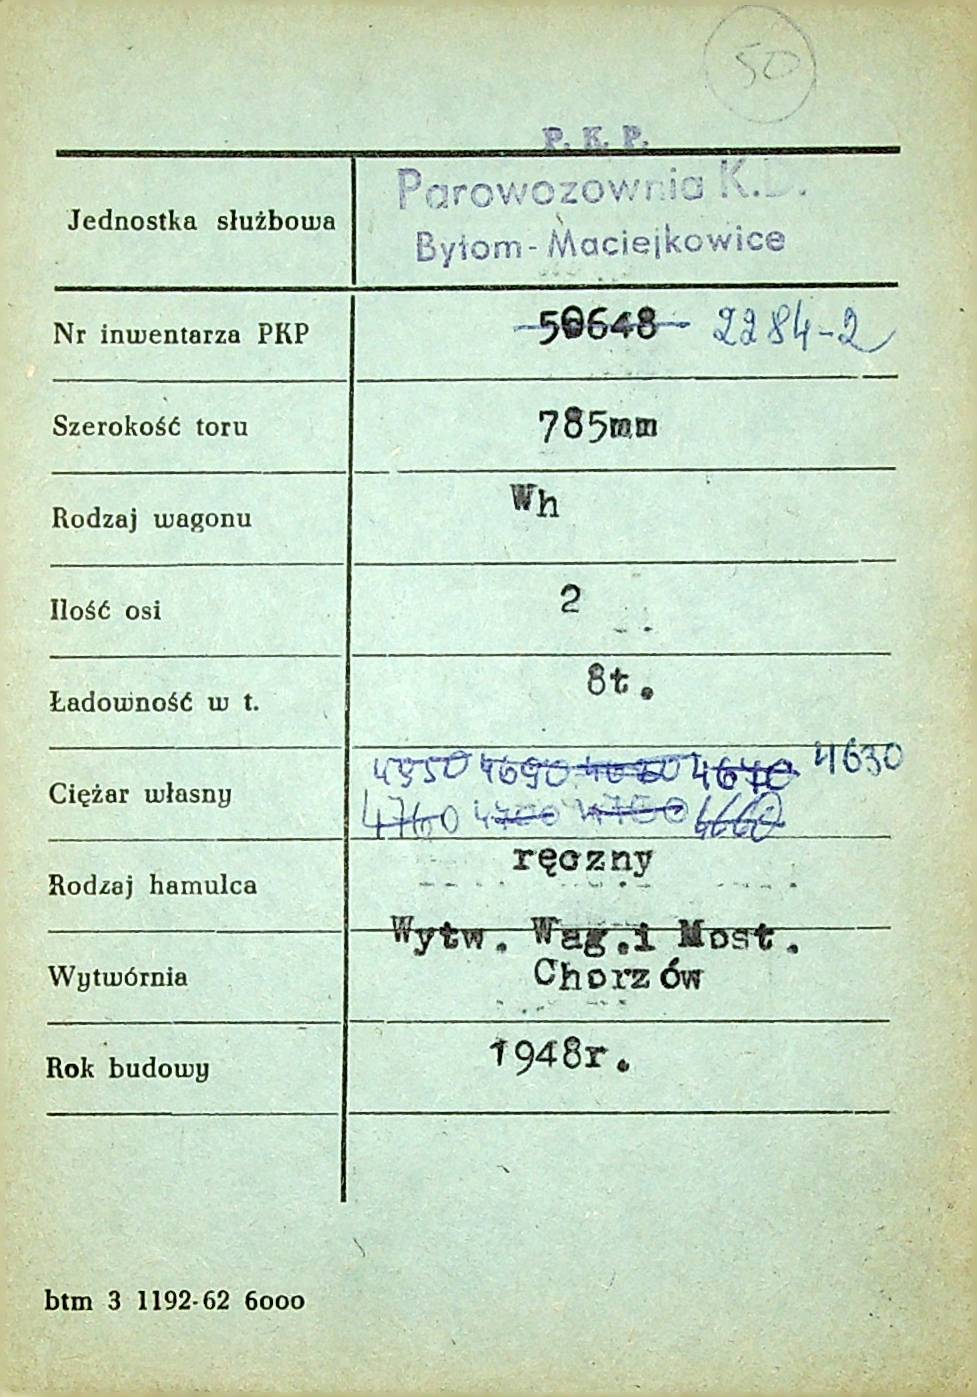 50
P. K. P.
Parowozownia K.D.
Jednostka służbowa
Bytom-Maciejkowice
Nr inwentarza PKP 50648 2284-2
Szerokość toru 785mm
Rodzaj wagonu Wh
Ilość osi 2
Ładowność w t. 8t.
4690 4670 4630
Ciężar własny
4760 4700 4660
Rodzaj hamulca ręczny
Wytw. Wag.i Most.
Wytwórnia Chorzów
Rok budowy 1948r.
btm 3 1192-62 6000